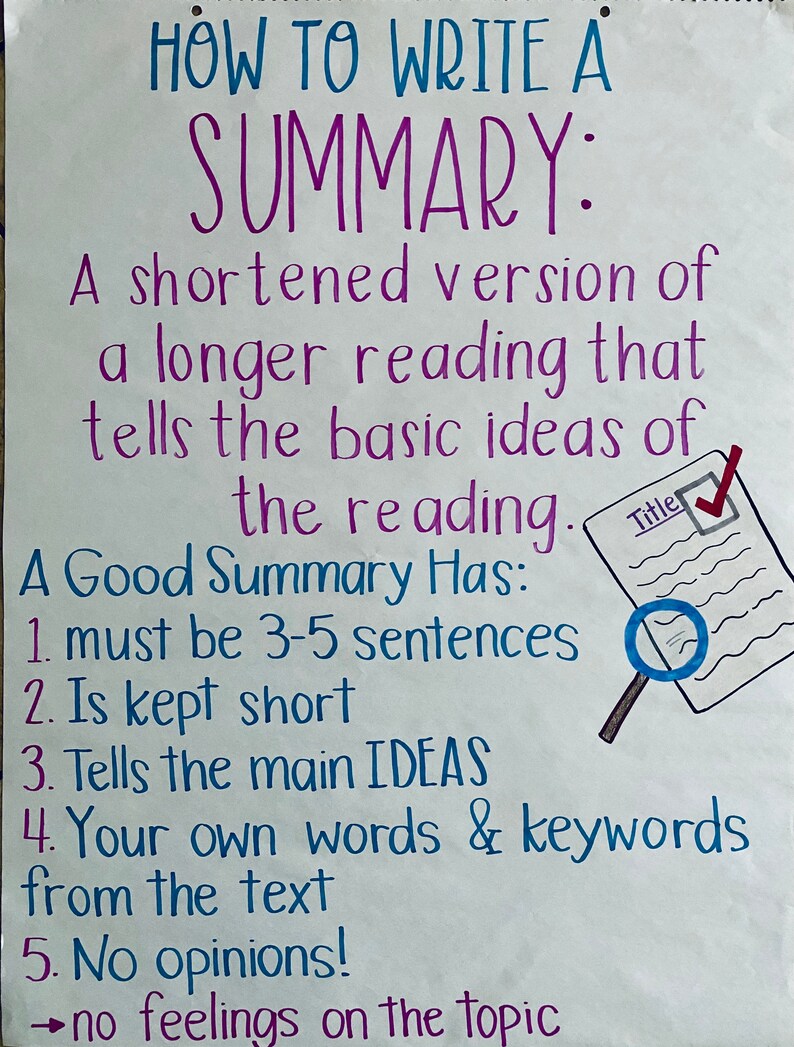 HOW TO WRITE A
SUMMARY:
A shortened version of
a longer reading that
tells the basic ideas of
the reading.
Title
A Good Summary Has:
1. must be 3-5 sentences
2. Is kept short
3. Tells the main IDEAS
4. Your own words & keywords
from the text
5. No opinions!
→no feelings on the topic